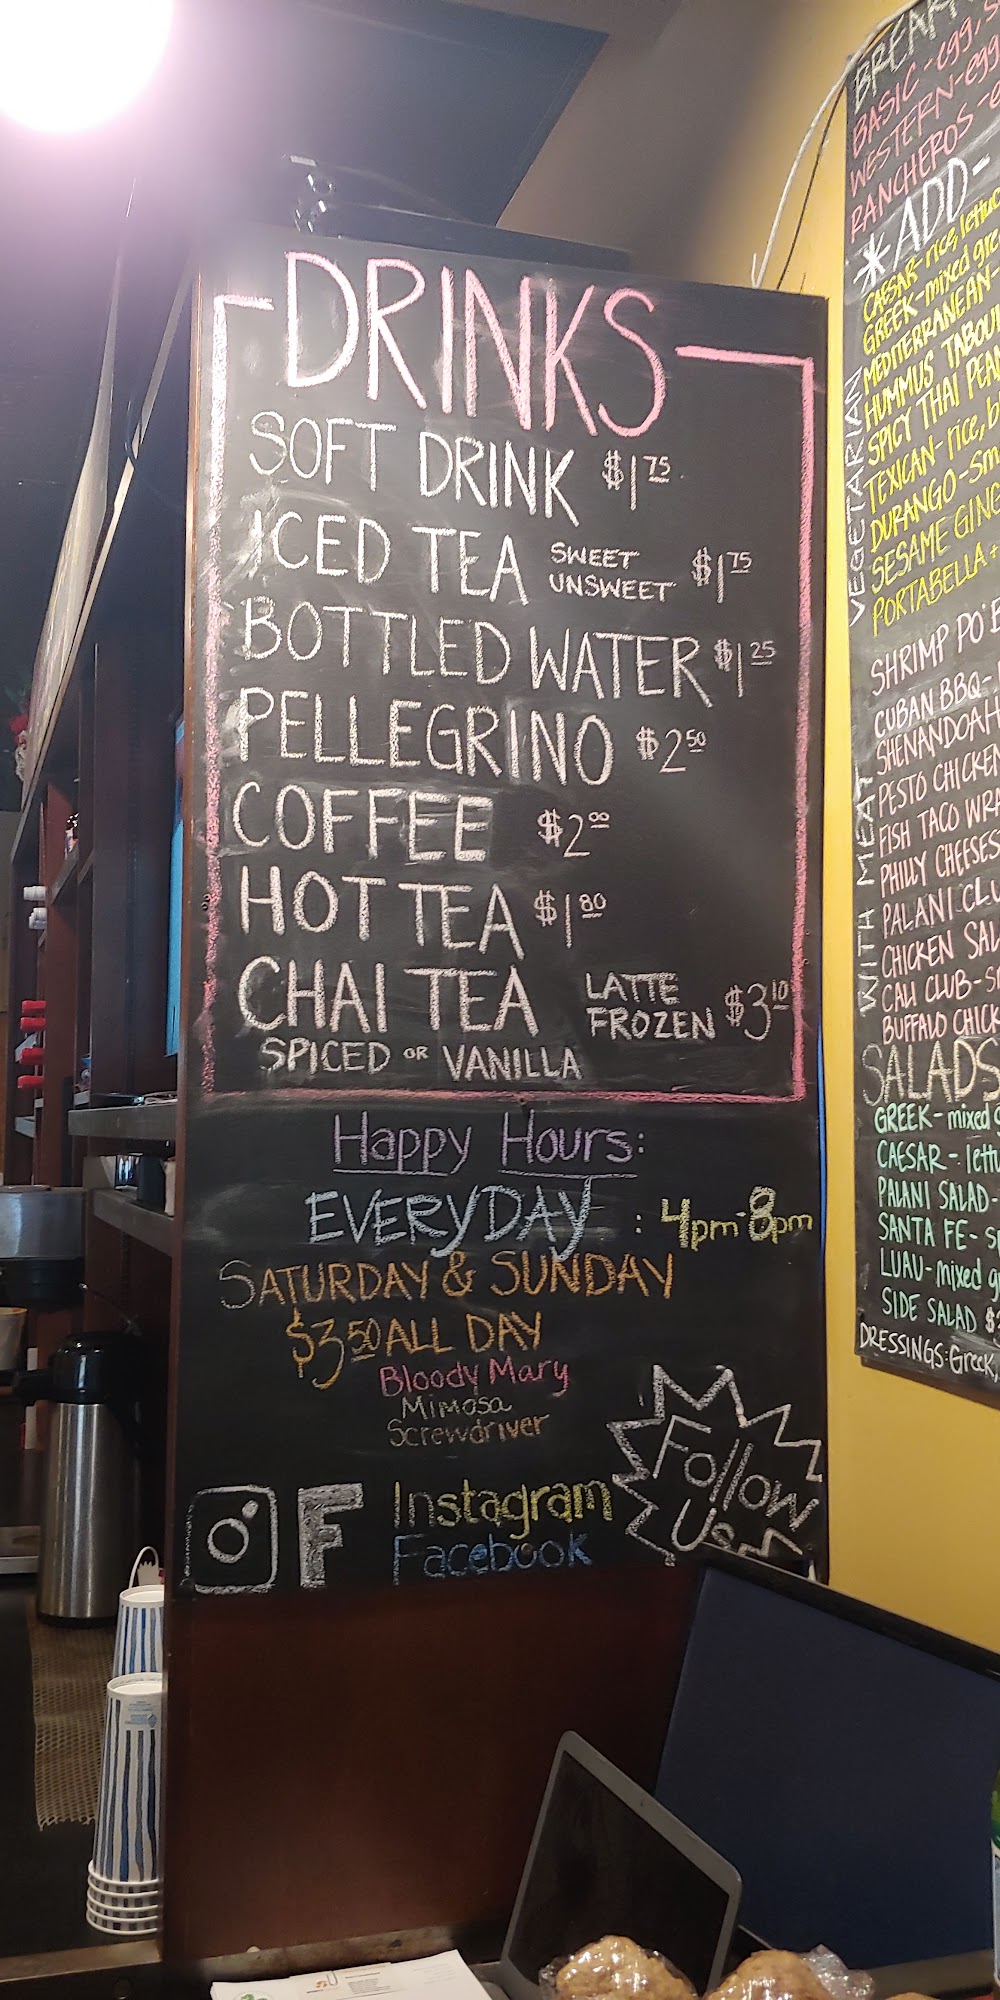 DRINKS
SOFT DRINK $1 75
ICED TEA SWEET UNSWEET $1 75
BOTTLED WATER $1 25
PELLEGRINO $2 50
COFFEE $2 00
HOT TEA $1 80
CHAI TEA LATTE FROZEN $3 10
SPICED OR VANILLA
Happy Hours:
EVERYDAY : 4pm-8pm
SATURDAY & SUNDAY
$3 50 ALL DAY
Bloody Mary
Mimosa
Screwdriver
Follow Us
F Instagram
Facebook
BASIC - egg,
WESTERN - egg
RANCHEROS -
*ADD-
VEGETARIAN
CAESAR - rice, lettuc
GREEK - mixed gre
MEDITERRANEAN -
HUMMUS TABOU
SPICY THAI PEAN
TEXICAN - rice, b
DURANGO - Sm
SESAME GING
PORTABELLA +
WITH MEAT
SHRIMP PO'B
CUBAN BBQ -
SHENANDOAH
PESTO CHICKEN
FISH TACO WRA
PHILLY CHEESES
PALANI CLU
CHICKEN SAL
CALI CLUB - S
BUFFALO CHICK
SALADS
GREEK - mixed g
CAESAR - lettu
PALANI SALAD -
SANTA FE - s
LUAU - mixed g
SIDE SALAD $
DRESSINGS: Greek,